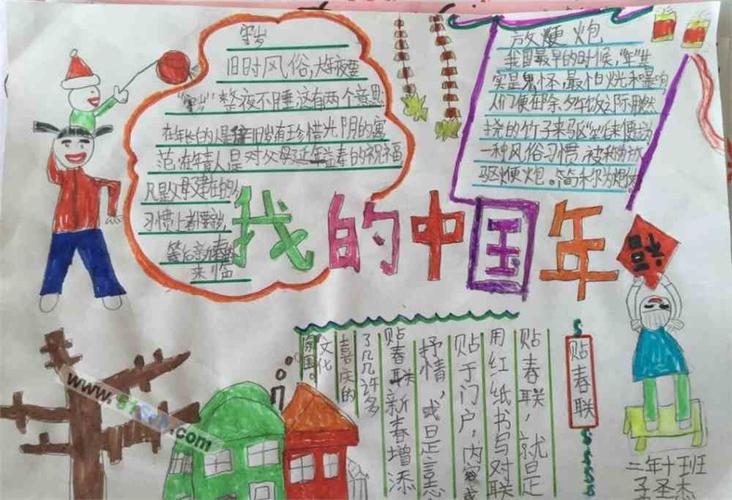 守岁
旧时风俗,大年夜要
"守岁"整夜不睡这有两个意思
在年长的人是辞旧岁有珍惜光阴的寓
范在年青人是对父母延年益寿的祝福
凡是父母健在的
习惯上都要守岁
等后新春的
来临
放鞭炮
我国最早的时候,"年"其
实是鬼怀.最怕火光和
人们便在除夕午饭之际用燃
烧的竹子来驱
一种风俗习惯,被称
驱便炮。简称为
我的中国年
福
贴春联
贴春联,就是
用红纸书写对联
贴于门户,内容或
抒情,或是言志
贴春联新春增添
了几许多
喜庆的
文化
二年十班
www.
.com